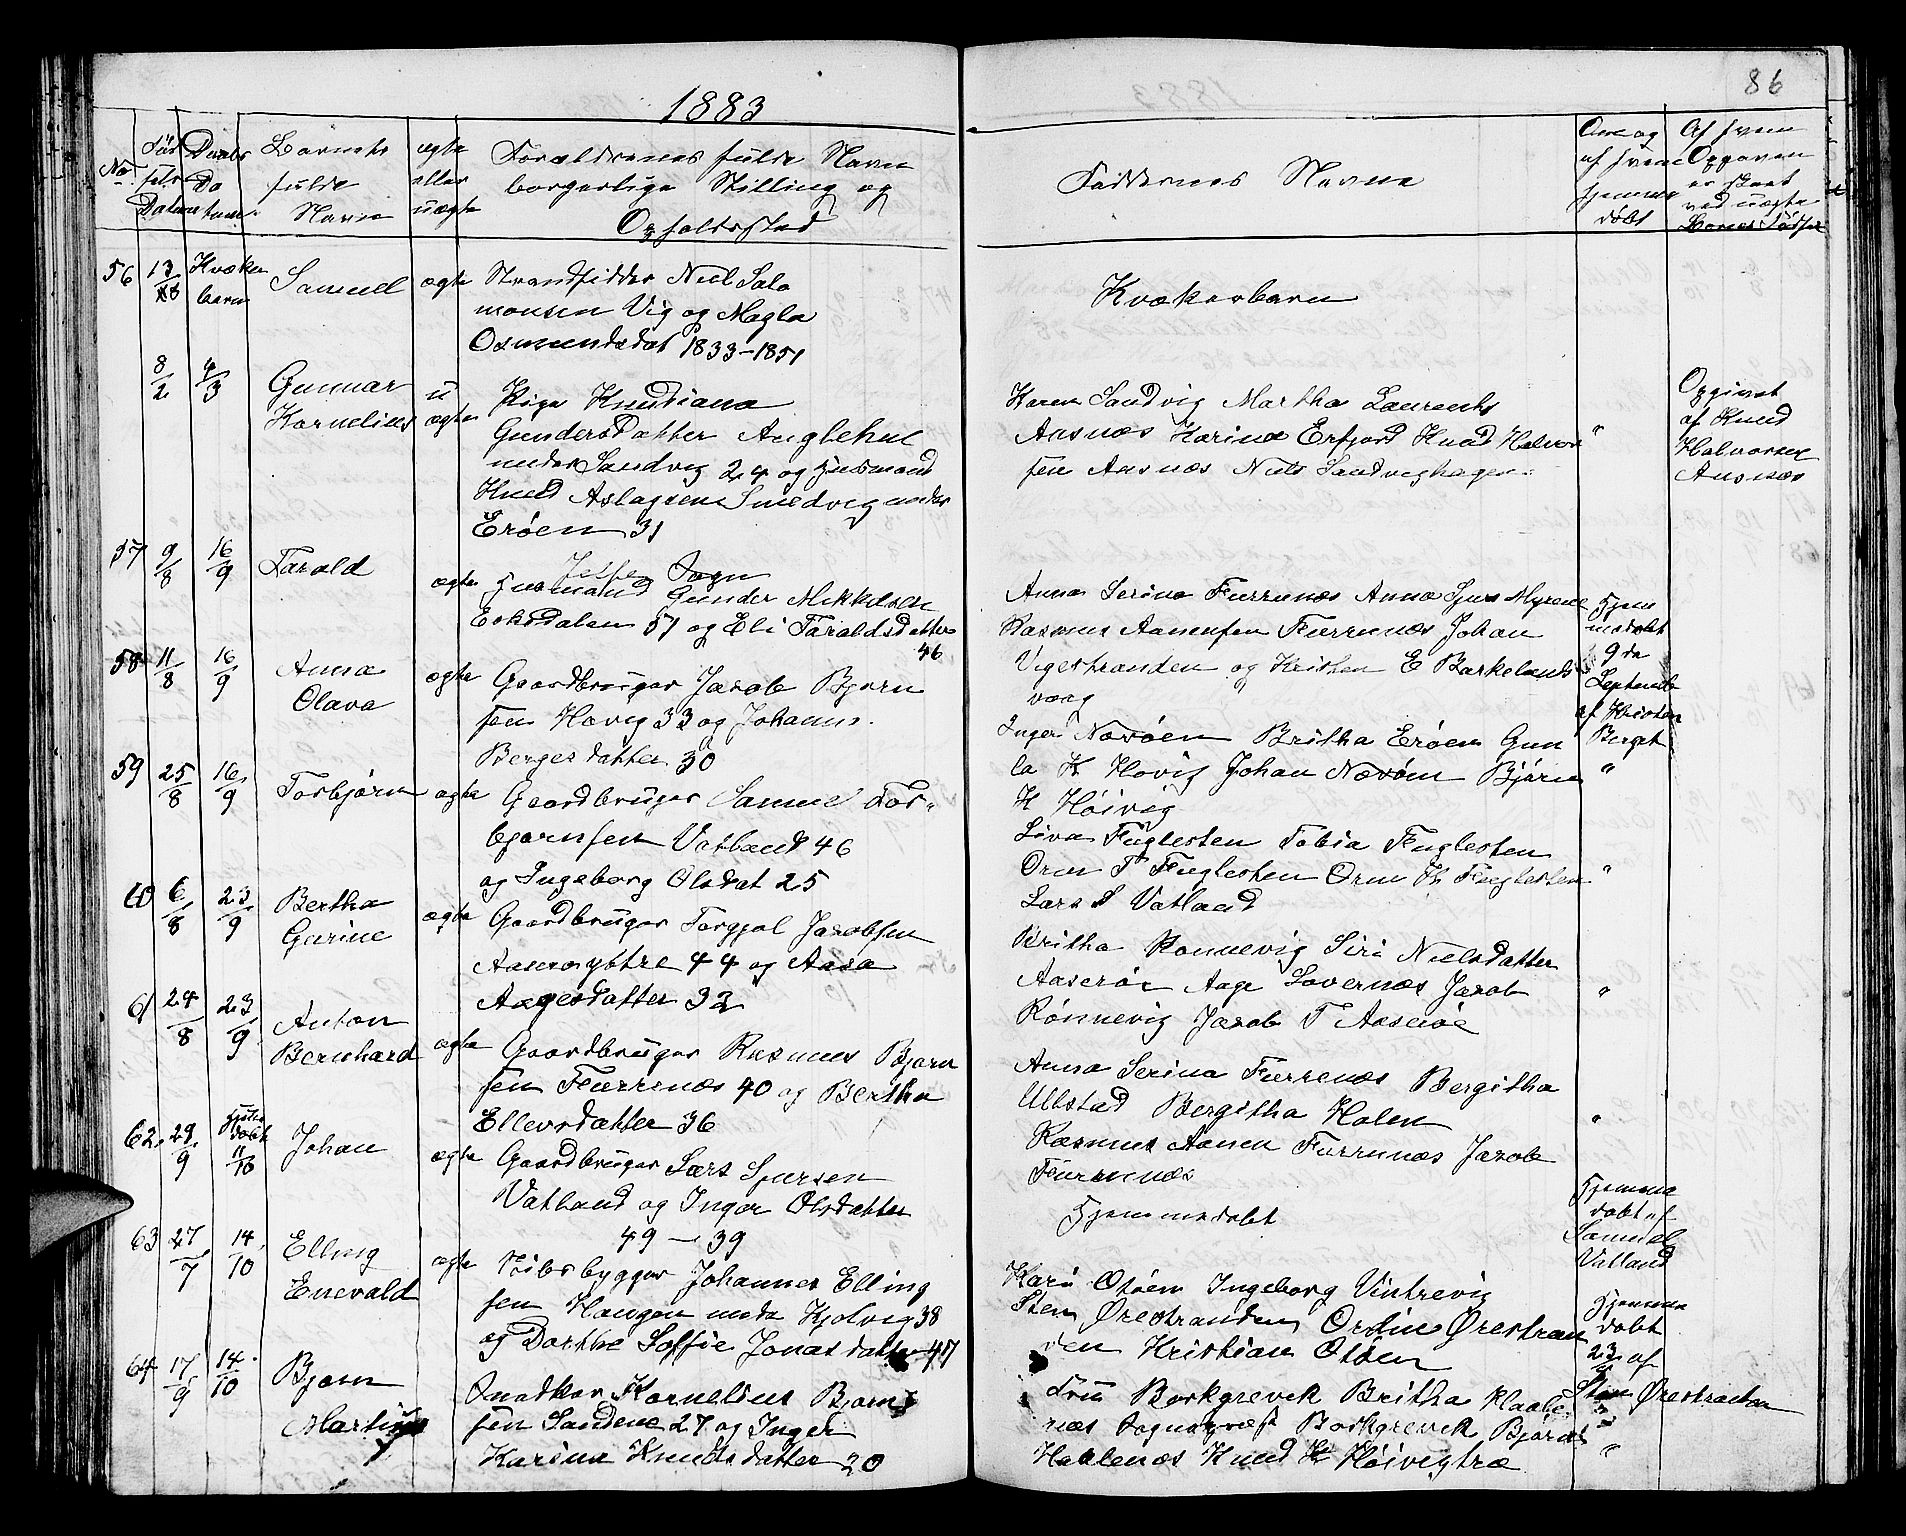 1883
86
No.
Fød
sels
Datum
Daabs
Da
tum
Barnets
fulde
Navn
ægte
eller
uægte
Forældrenes fulde Navn
borgerlige Stilling og
Opholdssted
Faddernes Navne
Om og
af hvem
hjemme
døbt
Af hvem
Opgaven
er skeet
ved uægte
Barns Fødsel
56 13/8 Kvæker
barn
Samuel ægte
Strandsidder Niel Salo
monsen Vig og Magla
Osmundsdat 1833-1851
Kvækerbarn
8/2 4/3 Gunnar
Kornelius
u
ægte
Pige Knudiana
Gundersdatter Anglehul
under Sandvig 24 og Huusmand
Knud Aslagsen Smedvig under
Erøen 31
Jelse Sogn
Karen Sandvig Martha Laurents
Aasnæs Karina Erfjord Knud Halvor
sen Aasnæs Niels Sandvighagen
"
Opgivet
af Knud
Halvorsen
Aasnæs
57 9/8 16/9 Tarald ægte
Huusmand Gunder Mikkelsen
Eeksdalen 51 og Eli Taraldsdatter
46
Anna Serina Furrenæs Anna Sjurs Myrene
Rasmus Aanensen Furrenæs Johan
Vigestranden og Kristen E Barkelands
vaag
Hjem
medøbt
9 de
Septembe
af Kristen
Berget
58 11/8 16/9 Anna
Olava
ægte
Gaardbruger Jacob Bjørn
sen Høvig 33 og Johanna
Bergesdatter 30
Inger Narøen Britha Erøen Gun
la K Høvig Johan Narøen Bjørn
K Høivig
"
59 25/8 16/9 Torbjørn ægte
Gaardbruger Samuel Tor-
bjørnsen Vatland 46
og Ingeborg Olsdat 25
Siva Fuglesten Tobia Fuglesten
Orm T Fuglesten Orm Th Fuglesten
Lars S Vatland
"
60 6/8 23/9 Bertha
Gurine
ægte
Gaardbruger Torgjal Jacobsen
Aamsyttre 44 og Aasa
Aagesdatter 32
Britha Rønnevig Siri Nielsdatter
Aaserøe Aage Lovernæs Jacob
Rønnevig Jacob T Aaserøe
"
61 24/8 23/9 Anton
Bernhard
ægte
Gaardbruger Rasmus Bjørn
sen Furrenæs 40 og Bertha
Ellevsdatter 36
Anna Serina Furrenæs Bergitha
Ullstad Bergitha Holen
Rasmus Aanen Furrenæs Jacob
Furrenæs
"
62. 29/9 Hjem
døbt
11/10
Johan ægte
Gaardbruger Lars Sjursen
Vatland og Inger Olsdatter
49 - 39
Hjemmedøbt
Hjemme
døbt af
Samuel
Vatland
63 27/7 14/10 Elling
Enevald
ægte
Skibsbygger Johannes Elling
sen Haugen unde Kjølvig 38
og Dorthe Soffie Jonasdatter 47
Kari Otøen Ingeborg Vintrevig
Sten Ørestranden Ordin Ørestran
den Kristian Otøen
Hjemme
døbt
23/9 af
Sten Ørestranden
64 17/9 14/10 Bjørn
Martinus
Snedker Kornelius Bjørn
sen Sandene 27 og Inger
Karina Knudsdatter 20
Fru Borkgrevek Britha Klaabe
næs Sognepræst Borkgrevek Bjørn
Haalenæs Knud K Høivigtræ
"